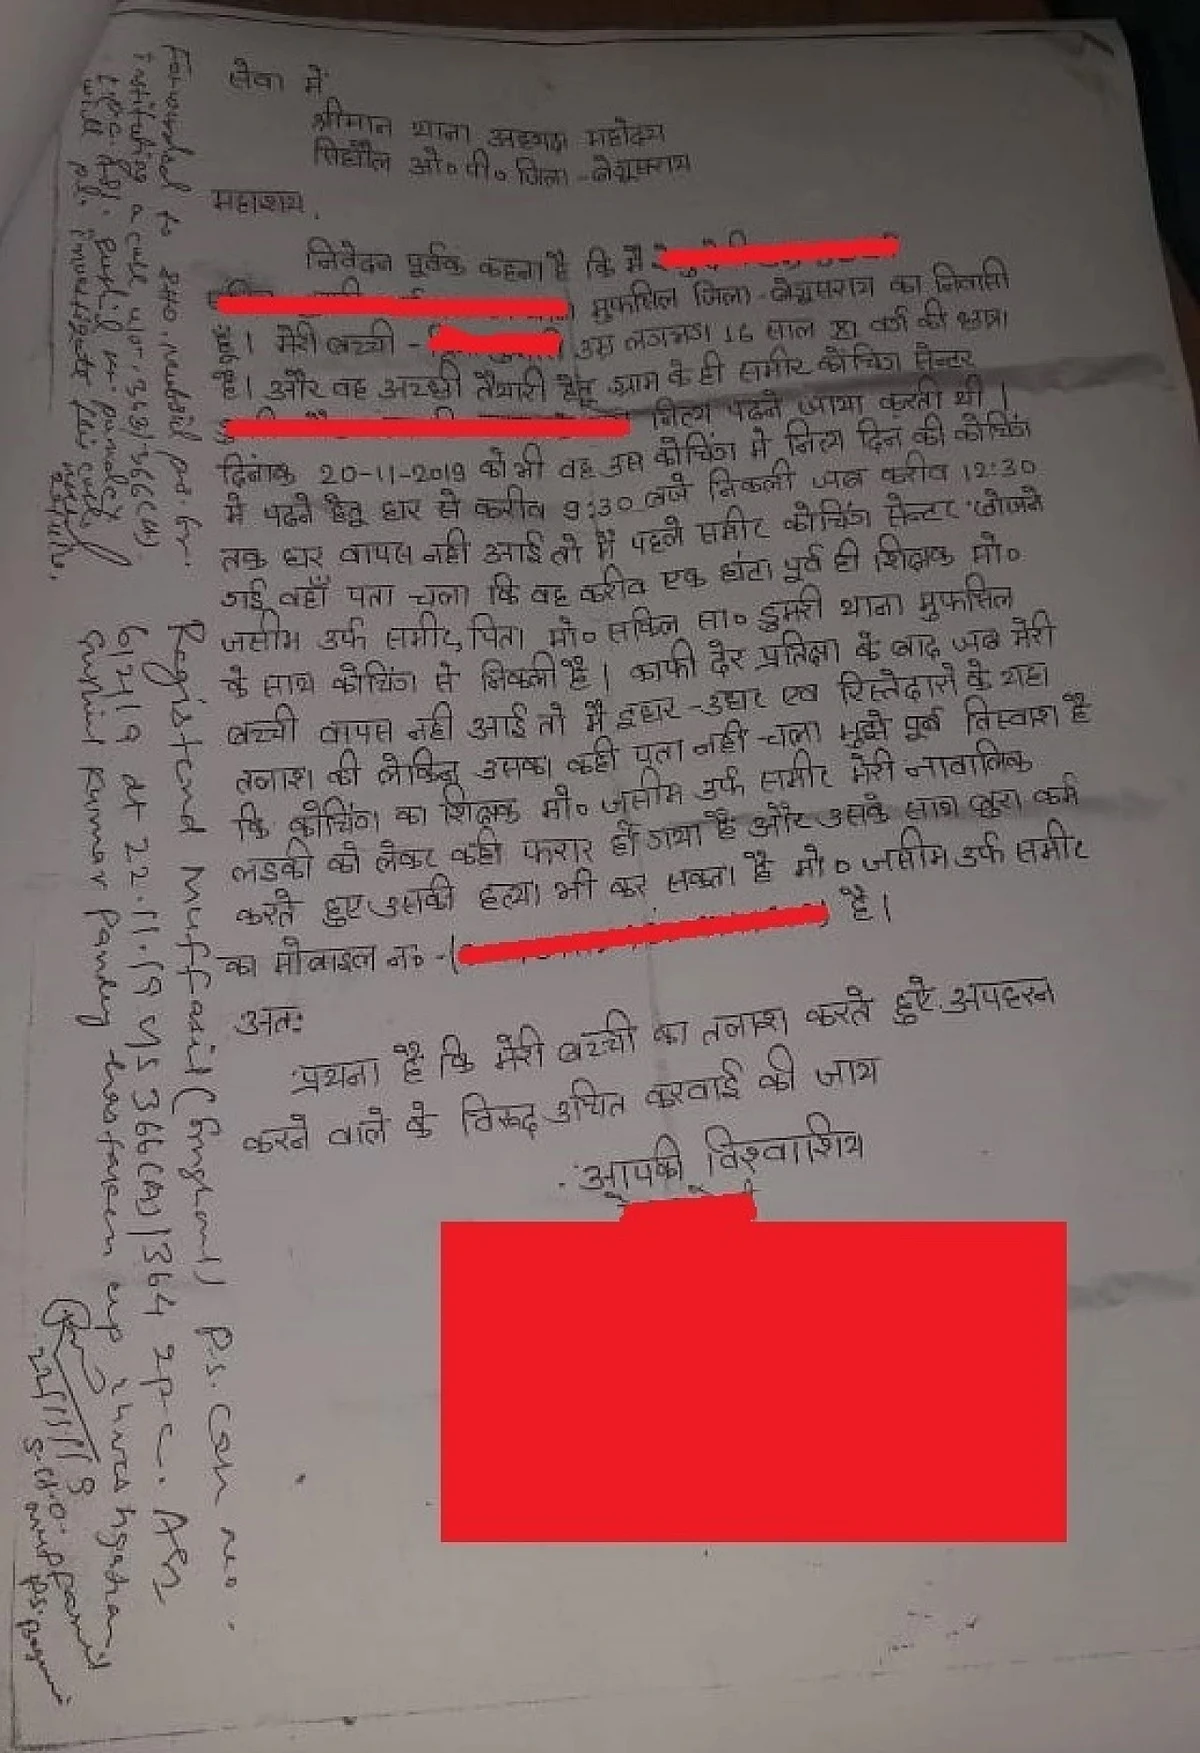 सेवा में
श्रीमान थाना अध्यक्ष महोदय
सिंघौल ओ० पी० जिला - बेगूसराय
महाशय,
निवेदन पूर्वक कहना है कि मैं
मुफसिल जिला - बेगूसराय का निवासी
हूँ। मेरी बच्ची - उम्र लगभग 16 साल वर्ग की छात्रा
है। और वह अच्छी तैयारी हेतू ग्राम के ही समीर कोचिंग सेन्टर
नित्य पढने जाया करती थी।
दिनांक 20-11-2019 को भी वह उस कोचिंग मे नित्य दिन की कोचिंग
मे पढने हेतू घर से करीव 9:30 बजे निकली जब करीव 12:30
तक घर वापस नही आई तो मैं पहले समीर कोचिंग सेन्टर खोजने
गई वहाँ पता चला कि वह करीव एक घंटा पूर्व ही शिक्षक मो०
जसीम उर्फ समीर, पिता मो० सकिल सा० डुमरी थाना मुफसिल
के साथ कोचिंग से निकली है। काफी देर प्रतिक्षा के बाद जब मेरी
बच्ची वापस नही आई तो मैं इधर-उधर एव रिस्तेदारो के यहा
तलाश की लेकिन उसका कही पता नही चला मुझे पूर्व विस्वाश है
कि कोचिंग का शिक्षक मो० जसीम उर्फ समीर मेरी नावालिक
लडकी को लेकर कही फरार हो गया है और उसके साथ बुरा कर्म
करते हुए उसकी हत्या भी कर सकता है मो० जसीम उर्फ समीर
का मोबाइल न० -( ) है।
अतः
प्रथना है कि मेरी बच्ची का तलाश करते हुए अपहरन
करने वाले के विरूद्ध उचित करवाई की जाय
आपकी विश्वाशिय
Forwarded to SHO. Mufasil P.S. for
instituting a case u/s. 363/366(A)
I.P.C.
will P.S. investigate this case
Registered Muffasil (Singhaul) P.S. Case no.
624/19 dt 22.11.19 U/S 366(A)/364 IPC. ASI
Sunil Kumar Pandey
22/11/19
S.H.O.
P.S.